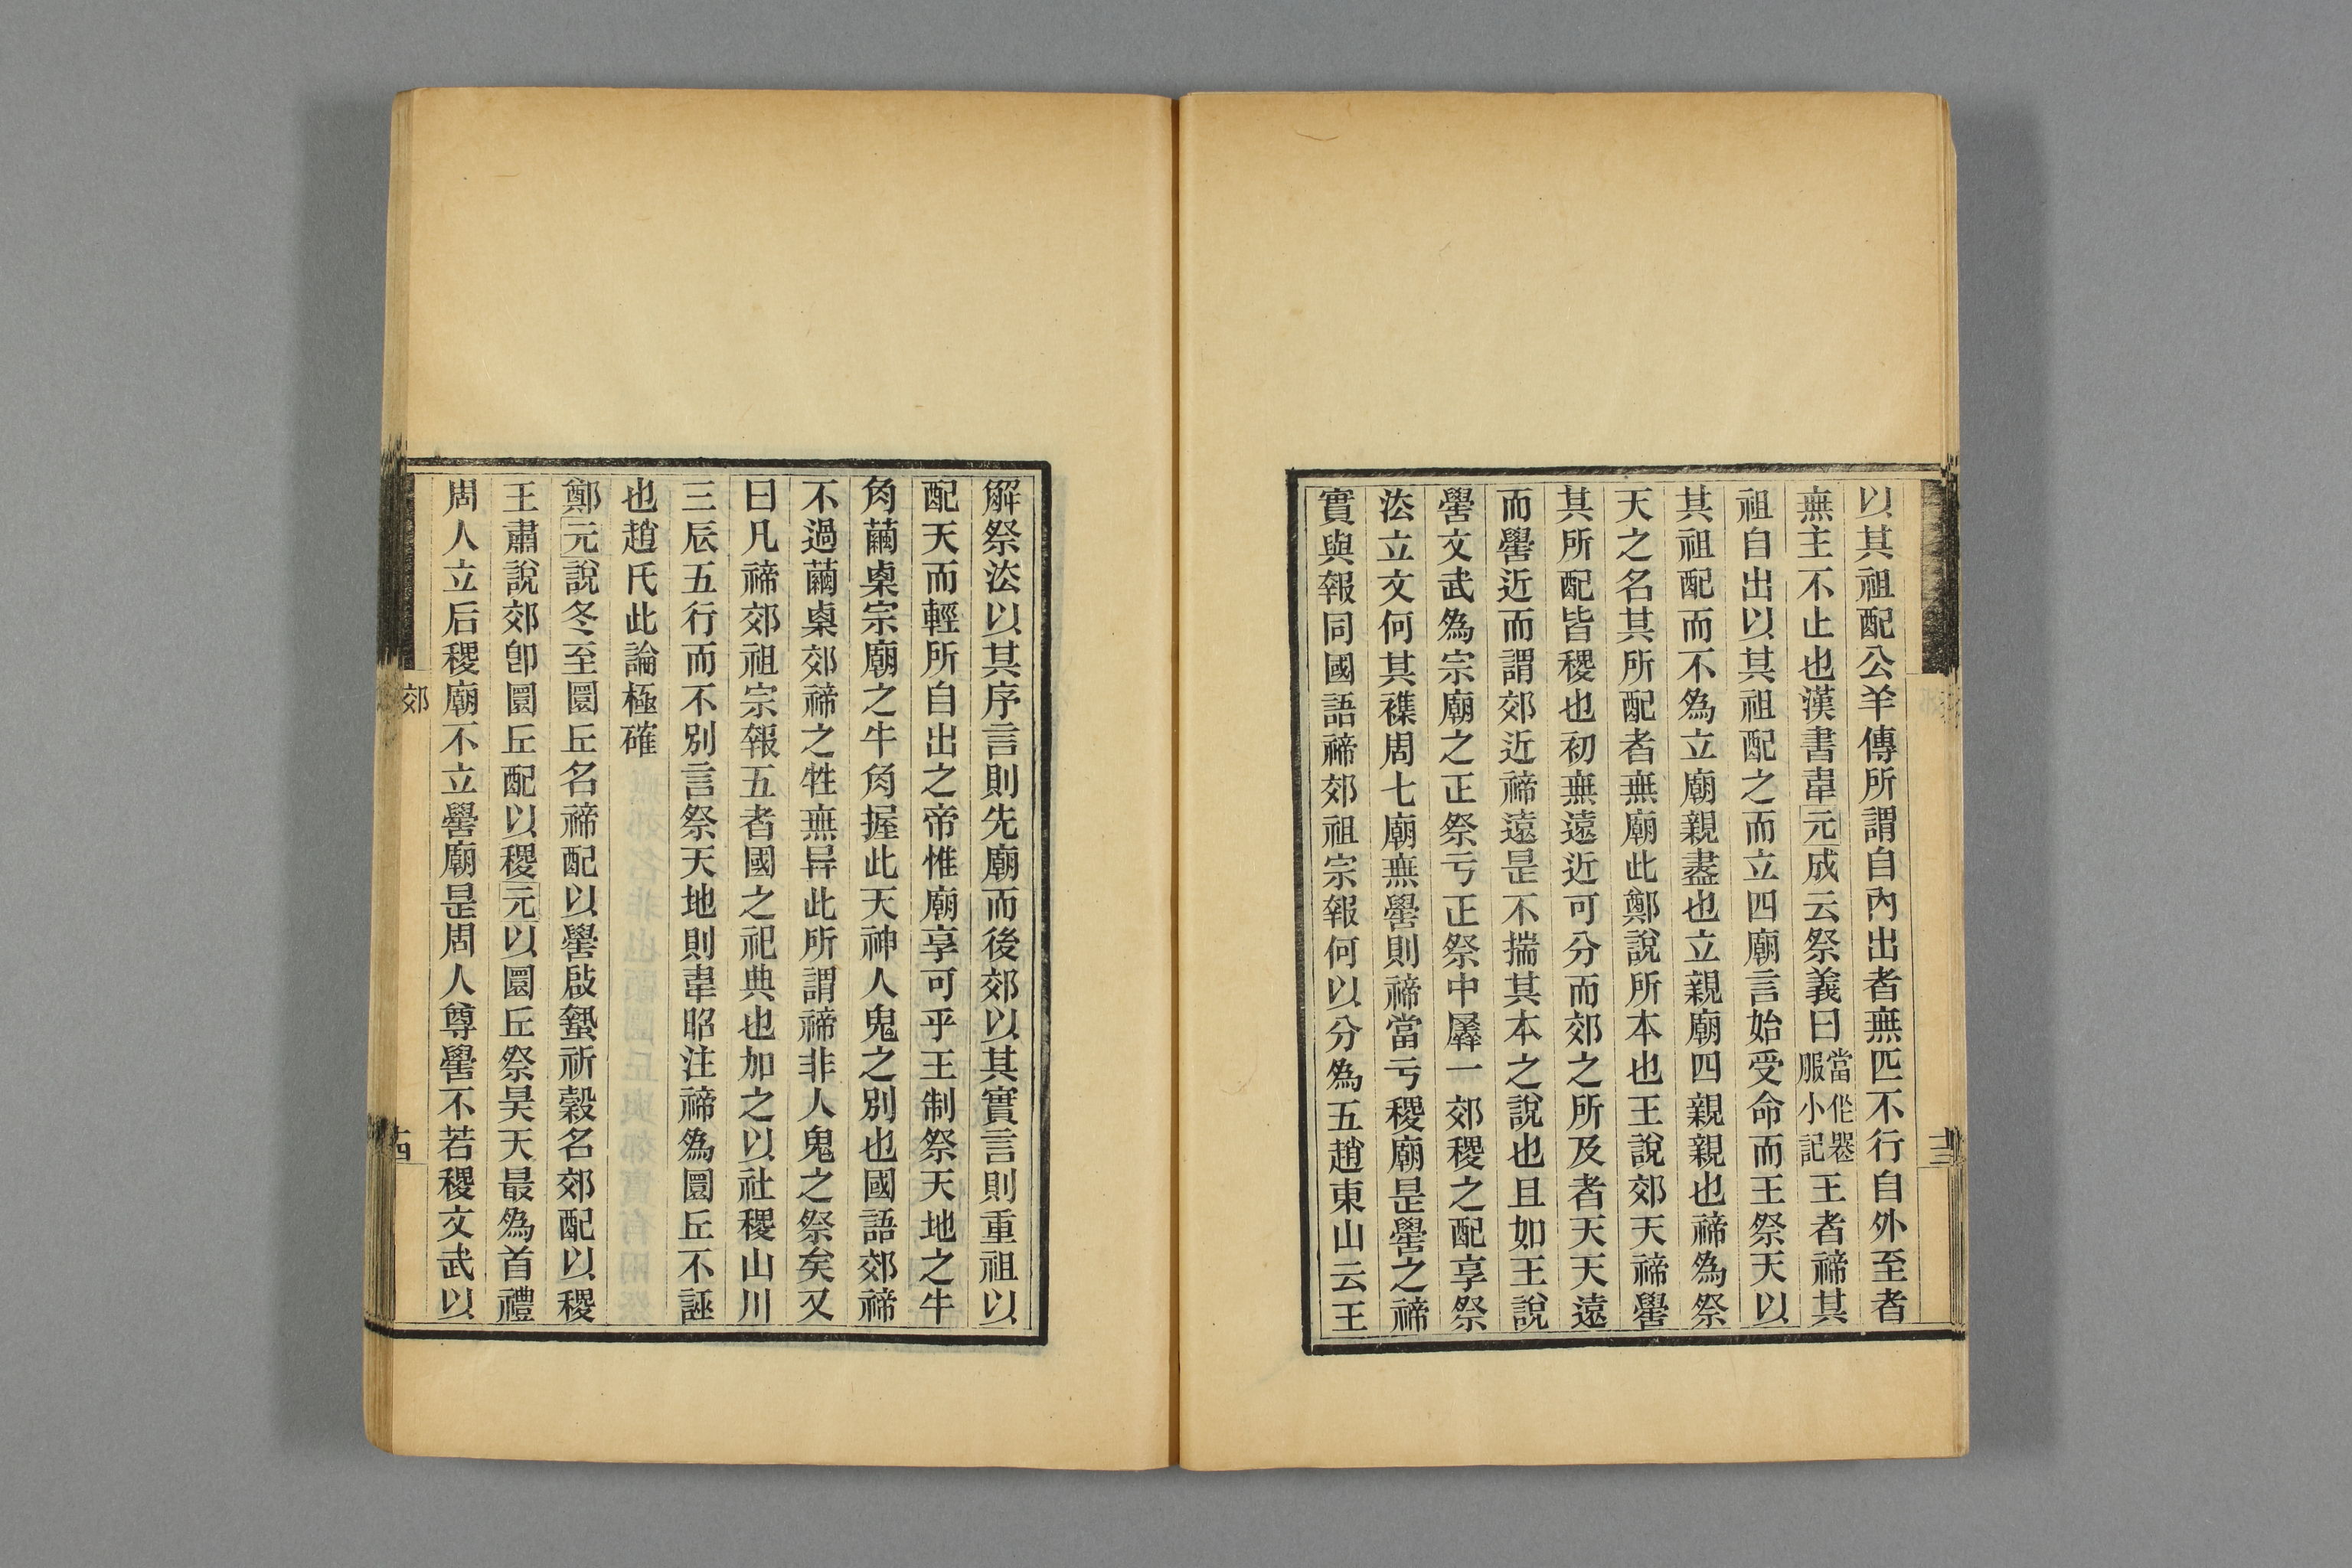 以其祖配公羊傳所謂自內出者無匹不行自外至者
無主不止也漢書韋元成云祭義曰當作喪服小記王者禘其
祖自出以其祖配之而立四廟言始受命而王祭天以
其祖配而不爲立廟親盡也立親廟四親親也禘爲祭
天之名其所配者無廟此鄭說所本也王說郊天禘嚳
其所配皆稷也初無遠近可分而郊之所及者天天遠
而嚳近而謂郊近禘遠是不揣其本之說也且如王說
嚳文武爲宗廟之正祭亏正祭中羼一郊稷之配享祭
法立文何其襍周七廟無嚳則禘當亏稷廟是嚳之禘
實與報同國語禘郊祖宗報何以分爲五趙東山云王
十三
解祭法以其序言則先廟而後郊以其實言則重祖以
配天而輕所自出之帝惟廟享可乎王制祭天地之牛
角繭㮚宗廟之牛角握此天神人鬼之別也國語郊禘
不過繭㮚郊禘之牲無异此所謂禘非人鬼之祭矣又
曰凡禘郊祖宗報五者國之祀典也加之以社稷山川
三辰五行而不別言祭天地則韋昭注禘爲圜丘不誣
也趙氏此論極確
鄭元說冬至圜丘名禘配以嚳啟蟄祈穀名郊配以稷
王肅說郊卽圜丘配以稷元以圜丘祭昊天最爲首禮
周人立后稷廟不立嚳廟是周人尊嚳不若稷文武以
郊
十四